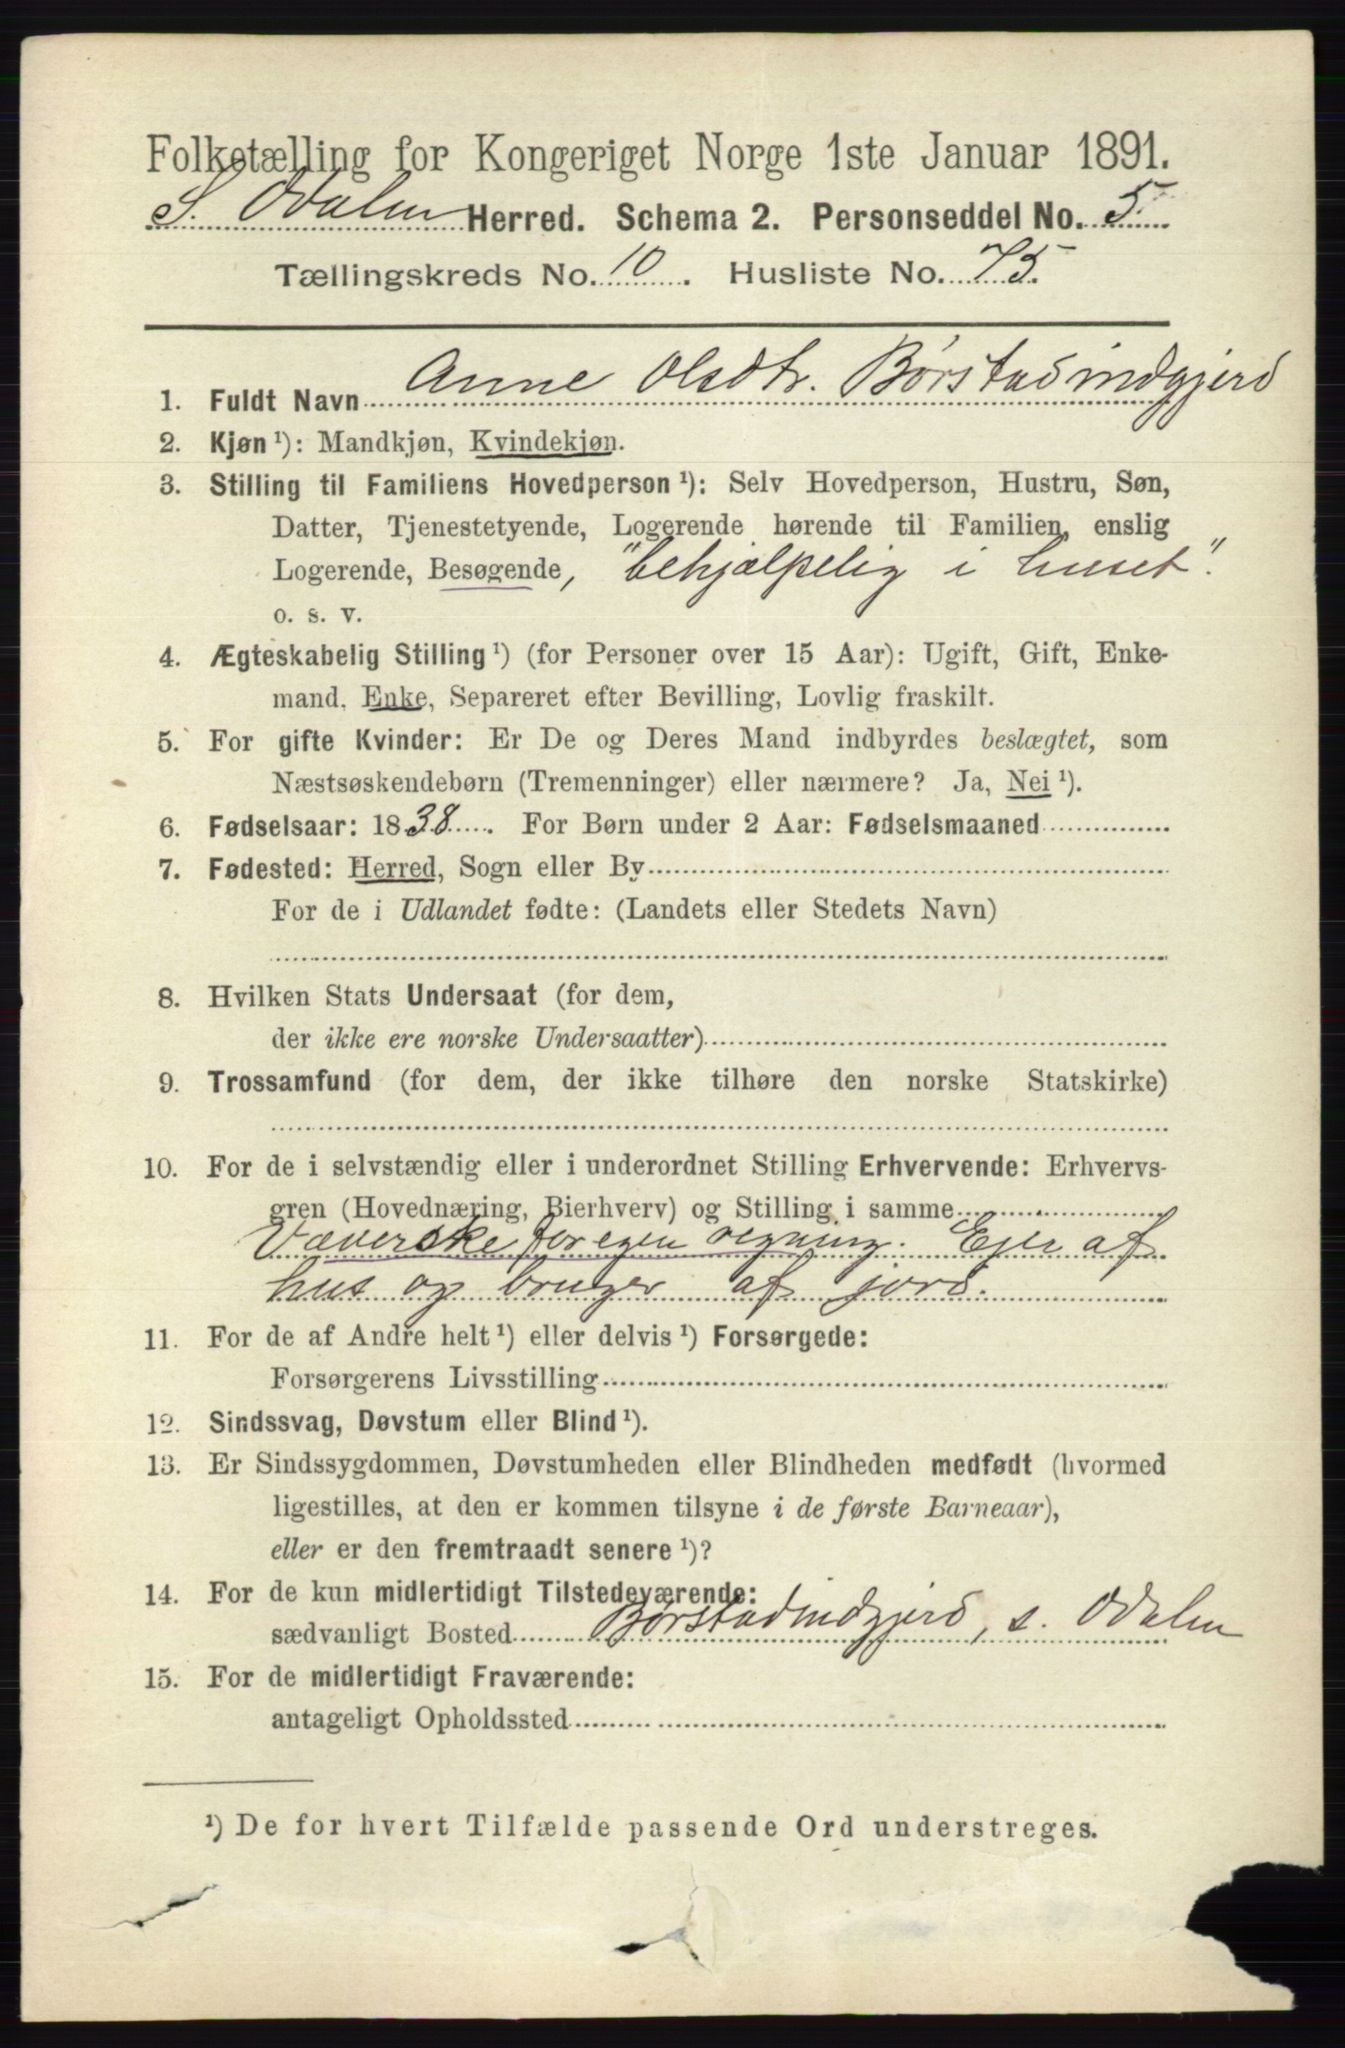 Folketælling for Kongeriget Norge 1ste Januar 1891.
S. Odalen Herred. Schema 2. Personseddel No. 5.
Tællingskreds No. 10. Husliste No. 75.
1. Fuldt Navn Anne Olsdtr. Børstadindgjerd
2. Kjøn ¹): Mandkjøn, Kvindekjøn.
3. Stilling til Familiens Hovedperson ¹): Selv Hovedperson, Hustru, Søn,
Datter, Tjenestetyende, Logerende hørende til Familien, enslig
Logerende, Besøgende, "behjælpelig i huset".
o. s. v.
4. Ægteskabelig Stilling ¹) (for Personer over 15 Aar): Ugift, Gift, Enke-
mand, Enke, Separeret efter Bevilling, Lovlig fraskilt.
5. For gifte Kvinder: Er De og Deres Mand indbyrdes beslægtet, som
Næstsøskendebørn (Tremenninger) eller nærmere? Ja, Nei ¹).
6. Fødselsaar: 1838. For Børn under 2 Aar: Fødselsmaaned
7. Fødested: Herred, Sogn eller By
For de i Udlandet fødte: (Landets eller Stedets Navn)
8. Hvilken Stats Undersaat (for dem,
der ikke ere norske Undersaatter)
9. Trossamfund (for dem, der ikke tilhøre den norske Statskirke)
10. For de i selvstændig eller i underordnet Stilling Erhvervende: Erhvervs-
gren (Hovednæring, Bierhverv) og Stilling i samme
Væverske for egen regning. Ejer af
hus og bruger af jord.
11. For de af Andre helt ¹) eller delvis ¹) Forsørgede:
Forsørgerens Livsstilling
12. Sindssvag, Døvstum eller Blind ¹).
13. Er Sindssygdommen, Døvstumheden eller Blindheden medfødt (hvormed
ligestilles, at den er kommen tilsyne i de første Barneaar),
eller er den fremtraadt senere ¹)?
14. For de kun midlertidigt Tilstedeværende:
sædvanligt Bosted Børstadindgjerd, s. Odalen
15. For de midlertidigt Fraværende:
antageligt Opholdssted
¹) De for hvert Tilfælde passende Ord understreges.